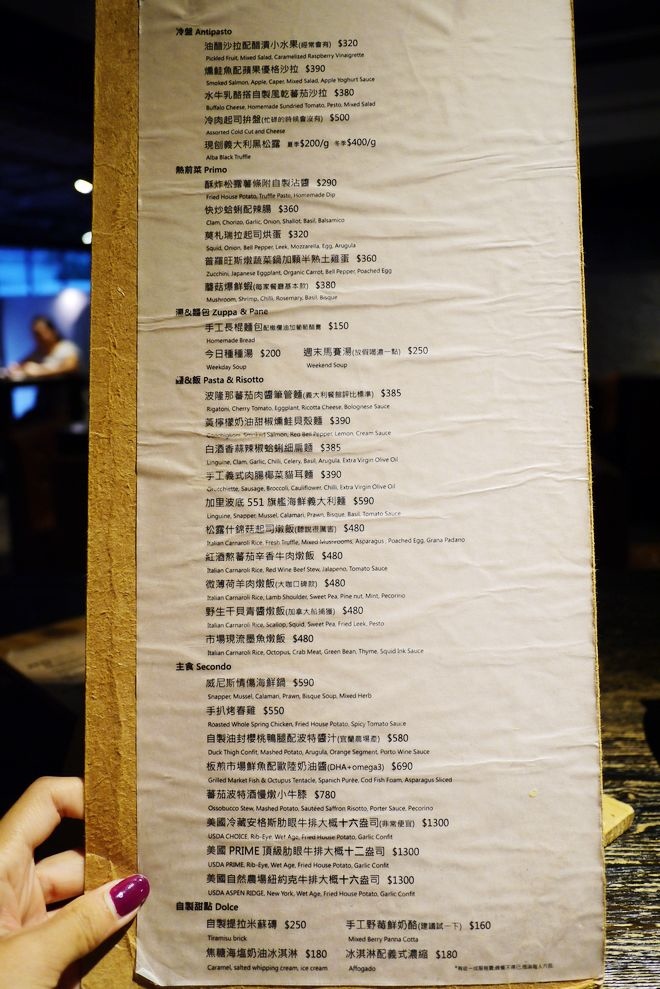 冷盤 Antipasto
油醋沙拉配醋漬小水果(經常會有) $320
Pickled Fruit, Mixed Salad, Caramelized Raspberry Vinaigrette
燻鮭魚配蘋果優格沙拉 $390
Smoked Salmon, Apple, Caper, Mixed Salad, Apple Yoghurt Sauce
水牛乳酪搭自製風乾蕃茄沙拉 $380
Buffalo Cheese, Homemade Sundried Tomato, Pesto, Mixed Salad
冷肉起司拚盤(忙碌的時候會沒有) $500
Assorted Cold Cut and Cheese
現刨義大利黑松露 夏季$200/g 冬季$400/g
Alba Black Truffle
熱前菜 Primo
酥炸松露薯條附自製沾醬 $290
Fried House Potato, Truffle Paste, Homemade Dip
快炒蛤蜊配辣腸 $360
Clam, Chorizo, Garlic, Onion, Shallot, Basil, Balsamico
莫札瑞拉起司烘蛋 $320
Squid, Onion, Bell Pepper, Leek, Mozzarella, Egg, Arugula
普羅旺斯燉蔬菜鍋加顆半熟土雞蛋 $360
Zucchini, Japanese Eggplant, Organic Carrot, Bell Pepper, Poached Egg
蘑菇爆鮮蝦(每家餐廳基本款) $380
Mushroom, Shrimp, Chilli, Rosemary, Basil, Bisque
湯&麵包 Zuppa & Pane
手工長棍麵包配橄欖油加葡萄醋膏 $150
Homemade Bread
今日種種湯 $200 週末馬賽湯(放假喝濃一點) $250
Weekday Soup Weekend Soup
麵&飯 Pasta & Risotto
波隆那蕃茄肉醬筆管麵(義大利餐館評比標準) $385
Rigatoni, Cherry Tomato, Eggplant, Ricotta Cheese, Bolognese Sauce
黃檸檬奶油甜椒燻鮭貝殼麵 $390
Conchiglioni, Smoked Salmon, Red Bell Pepper, Lemon, Cream Sauce
白酒香蒜辣椒蛤蜊細扁麵 $385
Linguine, Clam, Garlic, Chilli, Celery, Basil, Arugula, Extra Virgin Olive Oil
手工義式肉腸椰菜貓耳麵 $390
Orecchiette, Sausage, Broccoli, Cauliflower, Chilli, Extra Virgin Olive Oil
加里波底 551 旗艦海鮮義大利麵 $590
Linguine, Snapper, Mussel, Calamari, Prawn, Bisque, Basil, Tomato Sauce
松露什錦菇起司燉飯(聽說很厲害) $480
Italian Carnaroli Rice, Fresh Truffle, Mixed Mushrooms, Asparagus, Poached Egg, Grana Padano
紅酒熬蕃茄辛香牛肉燉飯 $480
Italian Carnaroli Rice, Red Wine Beef Stew, Jalapeno, Tomato Sauce
微薄荷羊肉燉飯(大咖口碑款) $480
Italian Carnaroli Rice, Lamb Shoulder, Sweet Pea, Pine nut, Mint, Pecorino
野生干貝青醬燉飯(加拿大船捕獲) $480
Italian Carnaroli Rice, Scallop, Squid, Sweet Pea, Fried Leek, Pesto
市場現流墨魚燉飯 $480
Italian Carnaroli Rice, Octopus, Crab Meat, Green Bean, Thyme, Squid Ink Sauce
主食 Secondo
威尼斯情傷海鮮鍋 $590
Snapper, Mussel, Calamari, Prawn, Bisque Soup, Mixed Herb
手扒烤春雞 $550
Roasted Whole Spring Chicken, Fried House Potato, Spicy Tomato Sauce
自製油封櫻桃鴨腿配波特醬汁(宜蘭農場產) $580
Duck Thigh Confit, Mashed Potato, Arugula, Orange Segment, Porto Wine Sauce
板煎市場鮮魚配歐陸奶油醬(DHA+omega3) $690
Grilled Market Fish & Octupus Tentacle, Spanich Purée, Cod Fish Foam, Asparagus Sliced
蕃茄波特酒慢燉小牛膝 $780
Ossobucco Stew, Mashed Potato, Sautéed Saffron Risotto, Porter Sauce, Pecorino
美國冷藏安格斯肋眼牛排大概十六盎司(非常便宜) $1300
USDA CHOICE, Rib-Eye, Wet Age, Fried House Potato, Garlic Confit
美國 PRIME 頂級肋眼牛排大概十二盎司 $1300
USDA PRIME, Rib-Eye, Wet Age, Fried House Potato, Garlic Confit
美國自然農場紐約克牛排大概十六盎司 $1300
USDA ASPEN RIDGE, New York, Wet Age, Fried House Potato, Garlic Confit
自製甜點 Dolce
自製提拉米蘇磚 $250 手工野莓鮮奶酪(建議試一下) $160
Tiramisu brick Mixed Berry Panna Cotta
焦糖海塩奶油冰淇淋 $180 冰淇淋配義式濃縮 $180
Caramel, salted whipping cream, ice cream Affogado